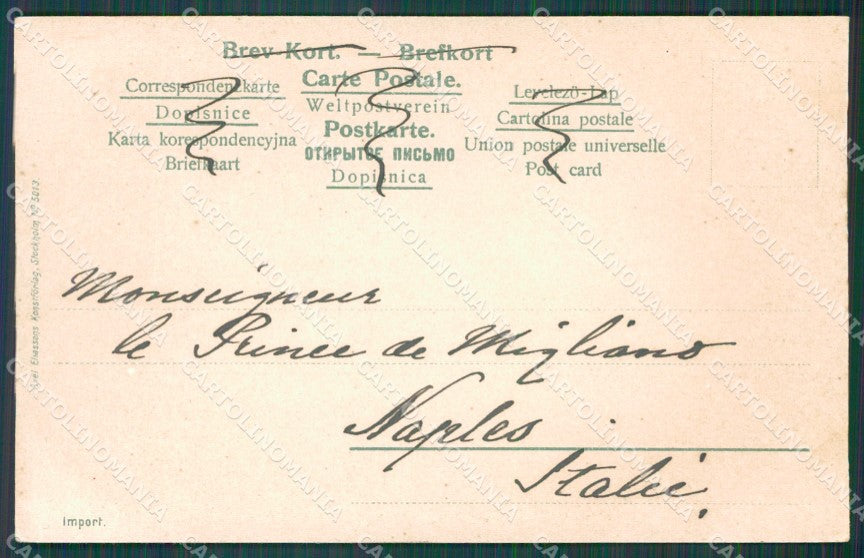 Brev-Kort. — Brefkort
Carte Postale.
Weltpostverein
Postkarte.
ОТКРЫТОЕ ПИСЬМО
Dopisnica
Correspondenzkarte
Dopisnice
Karta korespondencyjna
Briefkaart
Levelező-Lap
Cartolina postale
Union postale universelle
Post card
Axel Eliassons Konstförlag, Stockholm. Nº 5013
Monseigneur
le Prince de Migliano
Naples
Italie.
Import.
CARTOLINOMANIA